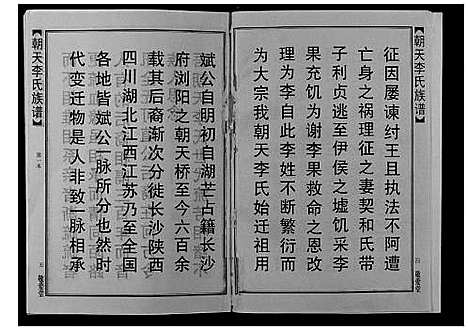 朝天李氏族谱
征因屡谏纣王且执法不阿遭
亡身之祸理征之妻契和氏带
子利贞逃至伊侯之墟饥采李
果充饥为谢李果救命之恩改
理为李自此李姓不断繁衍而
为大宗我朝天李氏始迁祖用
四
敬爱堂
斌公自明初自湖芒占籍长沙
府浏阳之朝天桥至今六百余
载其后裔渐次分徙长沙陕西
四川湖北江西江苏乃至全国
各地皆斌公一脉所分也然时
代变迁物是人非致一脉相承
朝天李氏族谱
第一本
五
敬爱堂